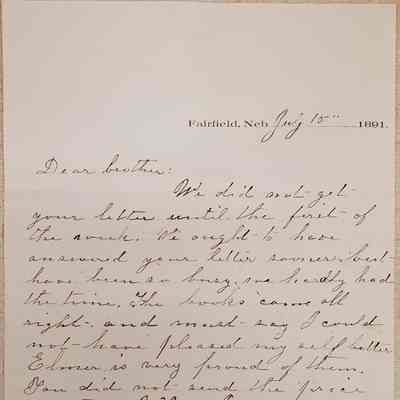 Fairfield, Neb July 15" 1891.
Dear brother:
We did not get
your letter until the first of
the week. We ought to have
answered your letter sooner but
have been so busy, we hardly had
the time. The books came all
right, and must say I could
not have pleased my self better
Elmer is very proud of them.
You did not send the price